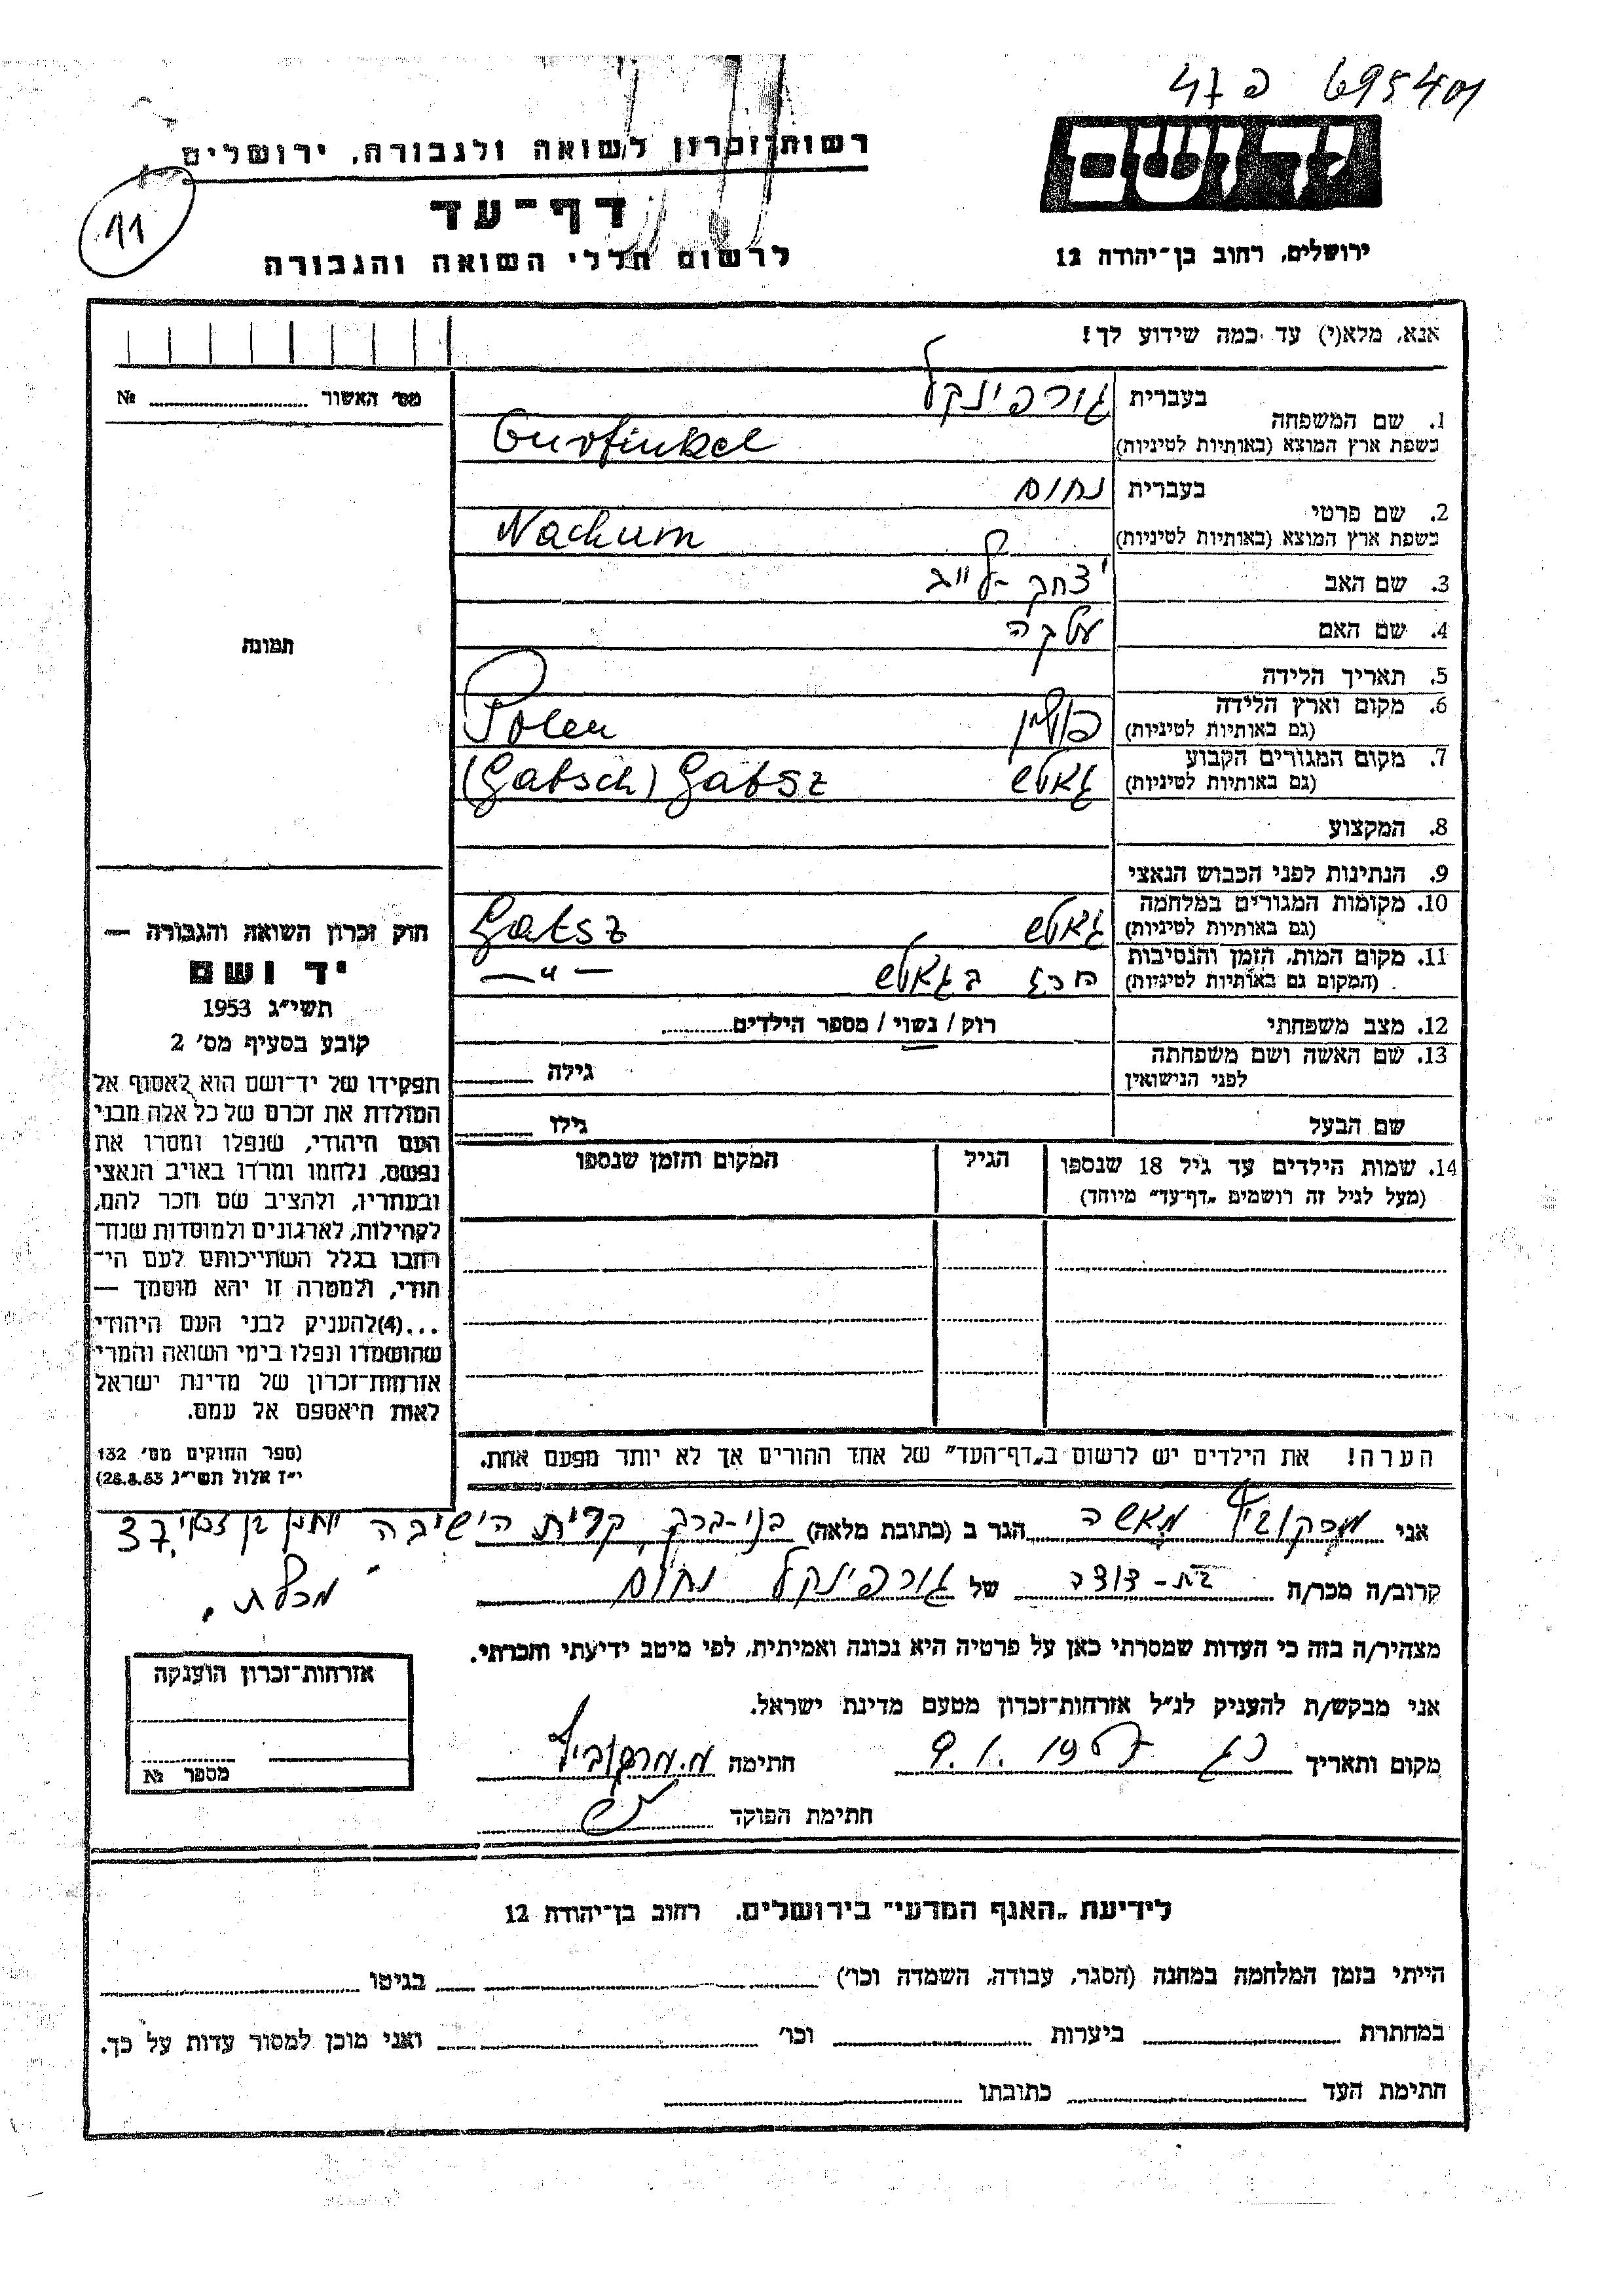 695401 פ 47
ידושם
ירושלים, רחוב בן־יהודה 12
רשות־זכרון לשואה ולגבורה, ירושלים
דף־עד
לרשום חללי השואה והגבורה
11
אנא, מלא(י) עד כמה שידוע לך!
מס׳ האשור ........ №
תמונה
1. שם המשפחה בעברית גורפינקל
כשפת ארץ המוצא (באותיות לטיניות) Gurfinkel
2. שם פרטי בעברית נחום
כשפת ארץ המוצא (באותיות לטיניות) Nachum
3. שם האב יצחק-לייב
4. שם האם
5. תאריך הלידה
6. מקום וארץ הלידה
(גם באותיות לטיניות) פולין Polen
7. מקום המגורים הקבוע
(גם באותיות לטיניות) גאטש (Gatsch) Gatsz
8. המקצוע
9. הנתינות לפני הכבוש הנאצי
10. מקומות המגורים במלחמה
(גם באותיות לטיניות) גאטש Gatsz
11. מקום המות, הזמן והנסיבות
(המקום גם באותיות לטיניות) הרג בגאטש — " —
12. מצב משפחתי רוק / נשוי / מספר הילדים
13. שם האשה ושם משפחתה
לפני הנישואין גילה
שם הבעל גילו
14. שמות הילדים עד גיל 18 שנספו הגיל המקום והזמן שנספו
(מעל לגיל זה רושמים „דף־עד״ מיוחד)
הערה! את הילדים יש לרשום ב„דף־העד״ של אחד ההורים אך לא יותר מפעם אחת.
חוק זכרון השואה והגבורה —
יד ושם
תשי״ג 1953
קובע בסעיף מס׳ 2
תפקידו של יד־ושם הוא לאסוף אל
המולדת את זכרם של כל אלה מבני
העם היהודי, שנפלו ומסרו את
נפשם, נלחמו ומרדו באויב הנאצי
ובעוזריו, ולהציב שם וזכר להם,
לקהילות, לארגונים ולמוסדות שנח־
רבו בגלל השתייכותם לעם הי־
הודי, ולמטרה זו יהא מוסמך —
...(4) להעניק לבני העם היהודי
שהושמדו ונפלו בימי השואה והמרי
אזרחות־זכרון של מדינת ישראל
לאות היאספם אל עמם.
(ספר החוקים מס׳ 132
י״ז אלול תשי״ג 28.8.53)
אני מרקוביץ מאשה הגר ב (כתובת מלאה) בני-ברק, קרית הישיבה 37,
קרוב/ה מכר/ה בת-דודה של גורפינקל נחום
מצהיר/ה בזה כי העדות שמסרתי כאן על פרטיה היא נכונה ואמיתית, לפי מיטב ידיעתי והכרתי.
אני מבקש/ת להעניק לנ״ל אזרחות־זכרון מטעם מדינת ישראל.
מקום ותאריך 9.1.1957 חתימה מ.מרקוביץ
חתימת הפוקד
אזרחות־זכרון הוענקה
מספר №
לידיעת „האגף המדעי״ בירושלים, רחוב בן־יהודה 12
הייתי בזמן המלחמה במחנה (הסגר, עבודה, השמדה וכו׳) בגיטו
במחתרת ביערות וכו׳ ואני מוכן למסור עדות על כך.
חתימת העד כתובתו